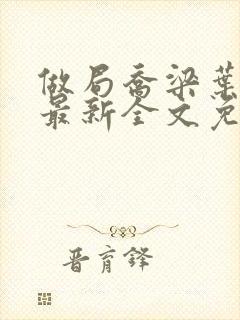 做局乔梁葉
最新全文免
晋育鋒